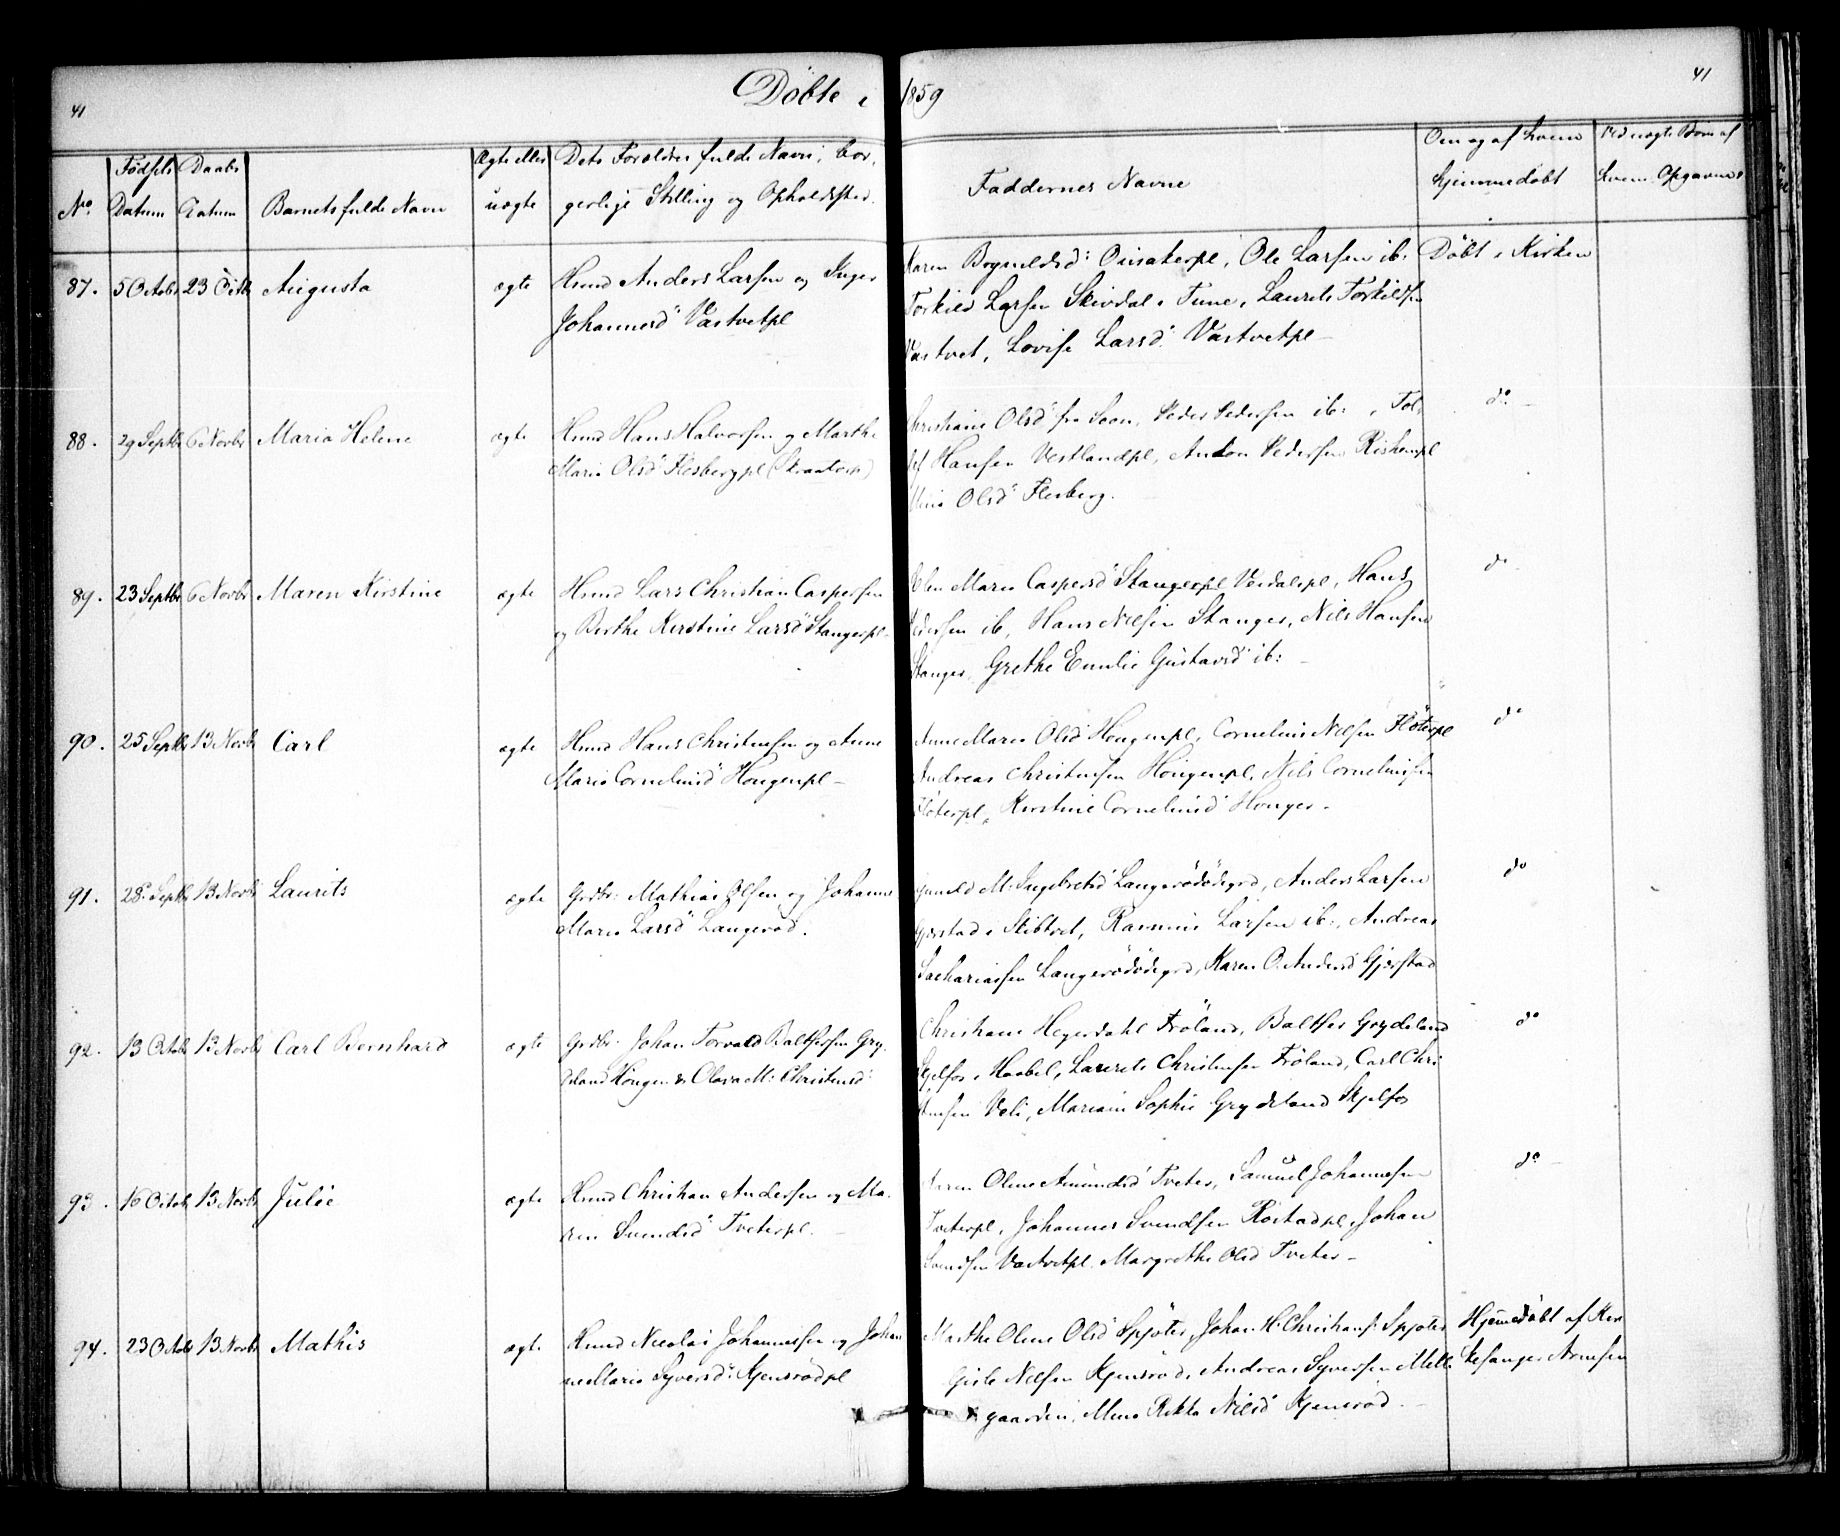 41
Döbte i 1859
41
No
Födsels Datum
Daabs Datum
Barnets fulde Navn
Ægte eller uægte
Dets Forældres fulde Navn, bor-
gerlige Stilling og Opholdsted.
Faddernes Navne
Om og af hvem
hjemmedöbt
Ved uægte Börn af
hvem Opgavnes
87. 5 Octobr 23 Octb Augusta ægte Huusmd Anders Larsen og Inger
Johannesd: Vastvetpl
Karen Ole Larsen ib. Döbt i Kirken
Torkild Larsen Skivdal i Tune, Laurits Torkildsen
Vastvet, Lovise Larsd: Vastvetpl
88. 29 Septbr 6 Novbr Maria Helene ægte Huusmd Hans Halvorsen og Marthe
Maria Olsd: Flesberg pl
Christiane Olsd: fra Soon, Peder Pedersen ib: do
Hansen Vestlandpl, Anton Pedersen
Olsd: Flesberg.
89. 23 Septbr 6 Novbr Maren Kirstine ægte Huusmd Lars Christian Caspersen
og Berthe Kirstine Larsd: Stangerpl
Maria Caspersd: Stangerpl Hans do
Pedersen ib, Hans Nilsen Stanger, Nils Hansen
Stanger, Grethe Emilie Gustavsd: ib:
90. 25 Septbr 13 Novbr Carl ægte Huusmd Hans Christensen og Anne
Maria Corneliusd: Hougenpl
Anne Maria Olsd: Hougenpl, Cornelius Nilsen Flöterpl do
Andreas Christensen Hougenpl, Nils Corneliusen
Flöterpl, Kirstine Corneliusd: Houger
91. 28 Septbr 13 Novbr Laurits ægte Grdbr: Mathias Olsen og Johanne
Maria Larsd: Langeröd.
Gunild M: Ingebretsd: Langerödödegrd, Anders Larsen do
Gjerstad i Skibtvet, Rasmus Larsen ib:, Andreas
Zachariassen Langerödödegrd, Karen O: Andersd: Gjerstad
92. 13 Octobr 13 Novbr Carl Bernhard ægte Grdbr: Johan Torvald Baltsersen Gry-
deland Hougen & Olava M: Christensd:
Christiane Heyerdahl Fröland, Baltser Grydeland do
Skjelfos i Haabel, Laurits Christensen Fröland, Carl Chri-
stensen Vali, Mariane Sophie Grydeland Skjelfos
93. 16 Octobr 13 Novbr Julie ægte Huusmd Christian Andersen og Ma-
ren Svendsd: Tveterpl.
Karen Oline Amundsd: Tveter, Samuel Johannesen do
Tveterpl, Johannes Svendsen Röstadpl, Johan
Svendsen Vastvetpl. Margrethe Olsd: Tveter
94. 23 Octobr 13 Novbr Mathis ægte Huusmd Nicolai Johannessen og Johan-
ne Maria Syversd: Kjensrödpl
Marthe Oline Olsd: Spjöter, Johan H: Christians: Spjöter Hjemedöbt af Kir-
Gisle Nilsen Kjensröd, Andreas Syversen Mell- kesanger Arnesen
gaarden, Nilsd: Kjensröd